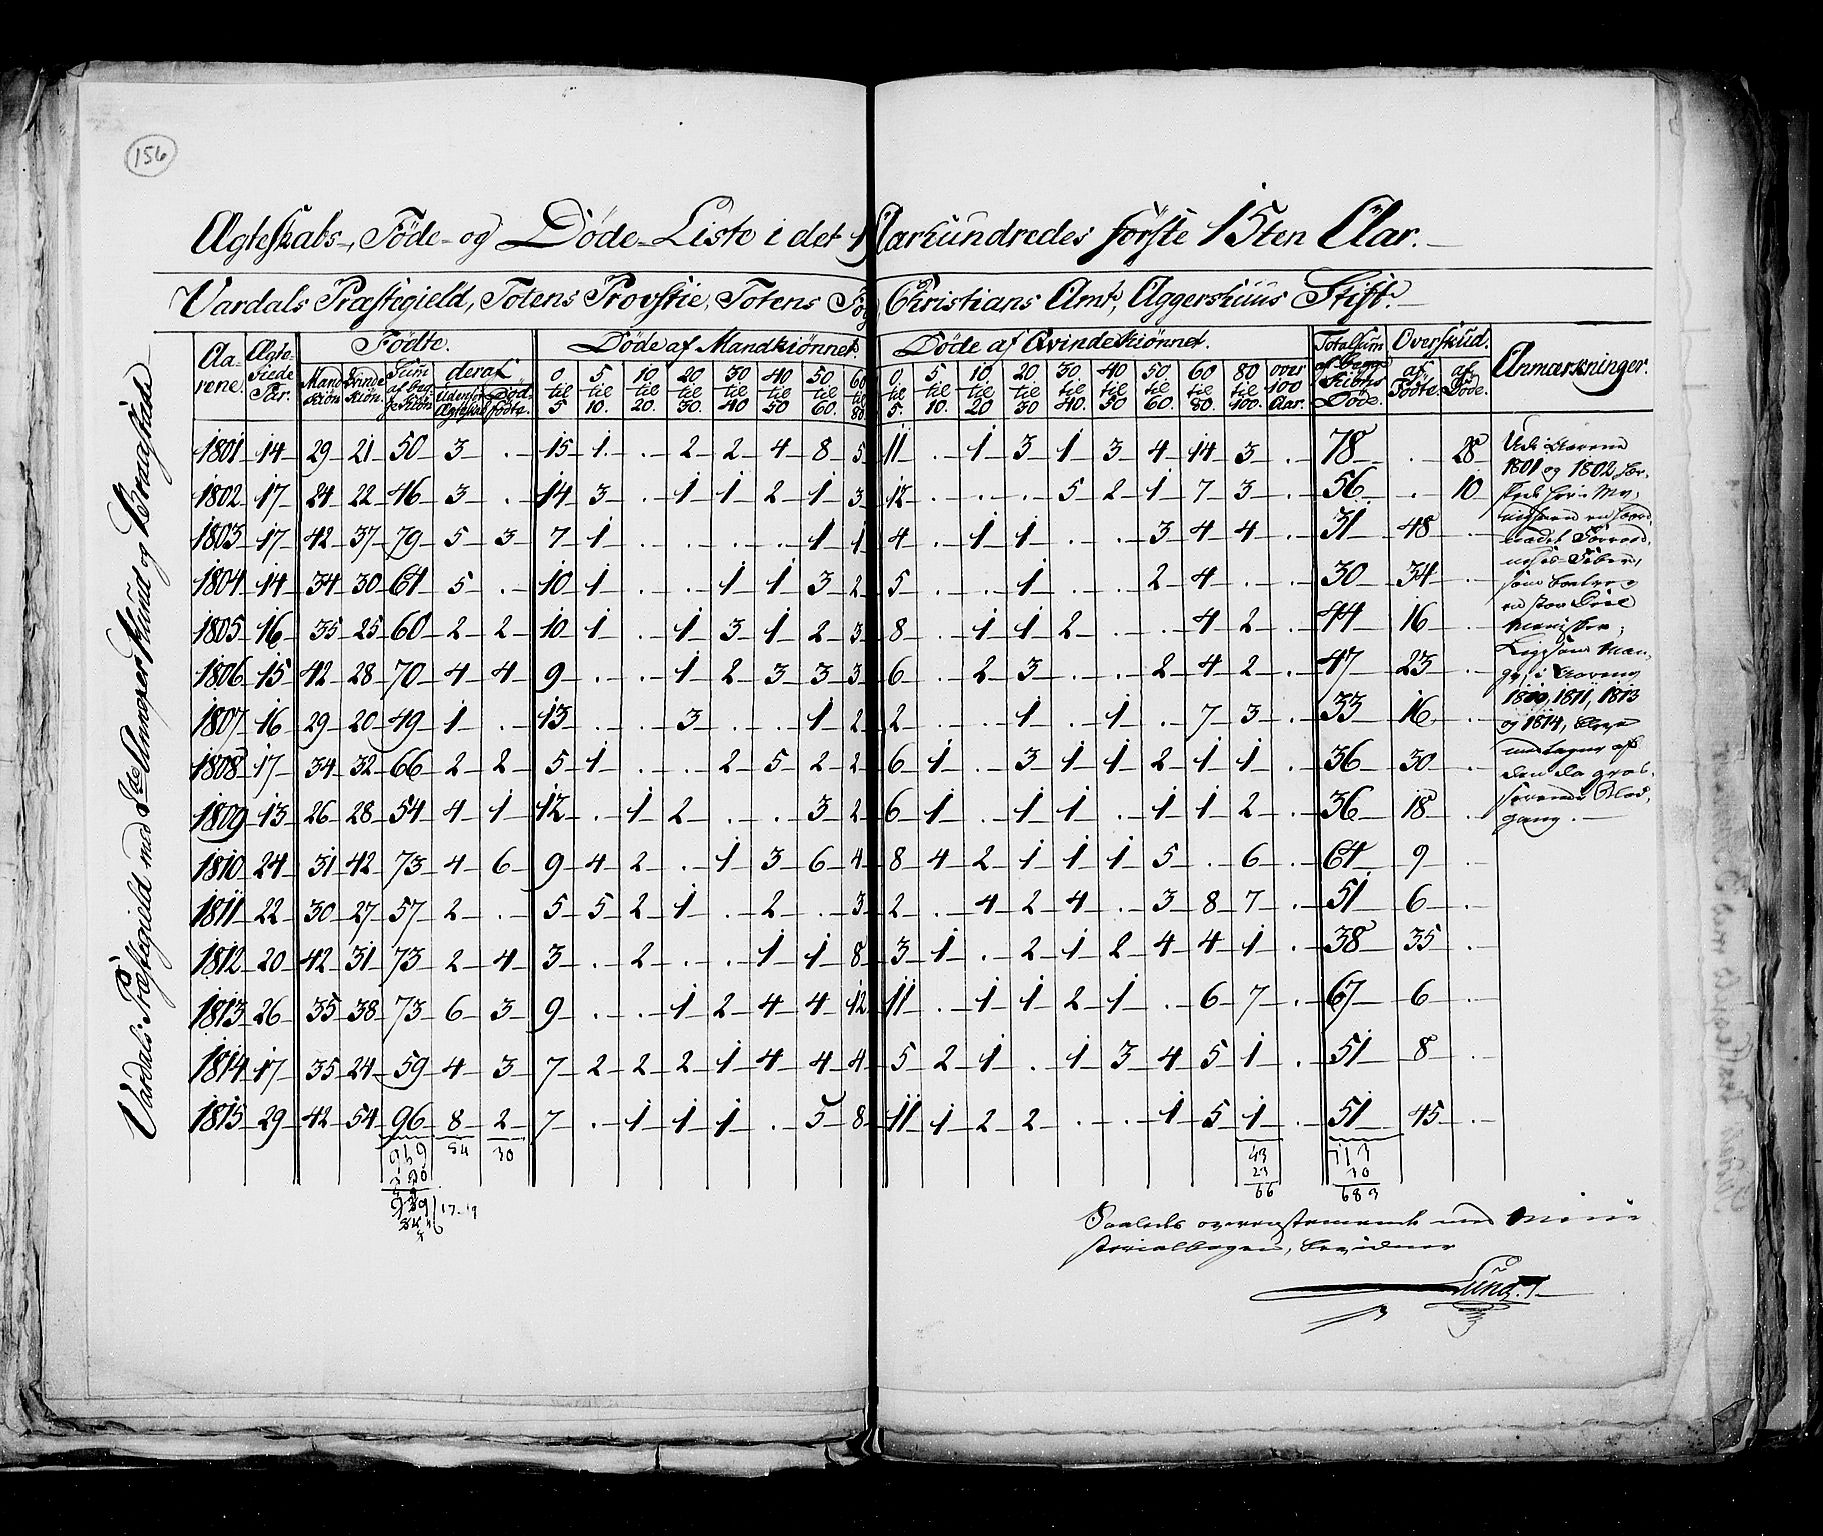 156
Ægteskabs-, Føde- og Døde-Liste i det Aarhundredes første 15ten Aar.
Vardals Præstegield, Totens Provstie, Totens Christians Amt, Aggershuus Stift.
Vardals Præstegield med Kund og Braastade
Aarene. Ægteviede Par. Fødte. Døde af Mandkiønnet. Døde af Qvindekiønnet. Totalsum af begge Kiøns Døde. Overskud. Anmærkninger.
Mandkiøn Qvindekiøn. Sum af begge Kiøn deraf udenfor Ægteskab Dødfødte. 0 til 5 5 til 10. 10 til 20. 20 til 30. 30 til 40 40 til 50 50 til 60. 60 til 80 0 til 5. 5 til 10. 10 til 20 20 til 30 30 til 40. 40 til 50 50 til 60. 60 til 80. 80 til 100. over 100 Aar. af Fødte. af Døde.
1801 14 29 21 50 3 . 15 1 . 2 2 4 8 5 11 . 1 3 1 3 4 14 3 . 78 . 28
1802 17 24 22 46 3 . 14 3 . 1 1 2 1 3 12 . . . 5 2 1 7 3 . 56 . 10
1803 17 42 37 79 5 3 7 1 . . . . 1 1 4 . 1 1 . . 3 4 4 . 31 48 .
1804 14 34 30 64 5 . 10 1 . . 1 1 3 2 5 . . 1 . . 2 4 . . 30 34 .
1805 16 35 25 60 2 2 10 1 . 1 3 1 2 3 8 . 1 1 2 . . 4 2 . 44 16 .
1806 15 42 28 70 4 4 9 . . 1 2 3 3 3 6 . 2 3 . . 2 4 2 . 47 23 .
1807 16 29 20 49 1 . 13 . . 3 . . 1 2 2 . . 1 . 1 . 7 3 . 33 16 .
1808 17 34 32 66 2 2 5 1 . . 2 5 2 2 6 1 . 3 1 1 2 1 1 . 36 30 .
1809 13 26 28 54 4 1 12 . 1 2 . . 3 2 6 1 . 1 1 . 1 1 2 . 36 18 .
1810 24 31 42 73 4 6 9 4 2 . 1 3 6 4 8 4 2 1 1 1 5 . 6 . 64 9 .
1811 22 30 27 57 2 . 5 5 2 1 . 2 . 3 2 . 4 2 4 . 3 8 7 . 51 6 .
1812 20 42 31 73 2 4 3 . 2 . . 1 1 8 3 1 . 2 1 2 4 4 1 . 38 35 .
1813 26 35 38 73 6 3 9 . . 1 2 4 4 12 11 . 1 1 2 1 . 6 7 . 67 6 .
1814 17 35 24 59 4 3 7 2 2 2 1 4 4 4 5 2 1 . 1 3 4 5 1 . 51 8 .
1815 29 42 54 96 8 2 7 . 1 1 1 . 5 8 11 1 2 2 . . 1 5 1 . 51 45 .
969 54 30 43 713
30 23 30
939 66 683
Udi Aarene
1801 og 1802
1810, 1811, 1813
og 1814,
den da gras-
serende Blod-
gang.
Saaledes overensstemmende med Mini-
sterialbogen, bevidner
Lund.